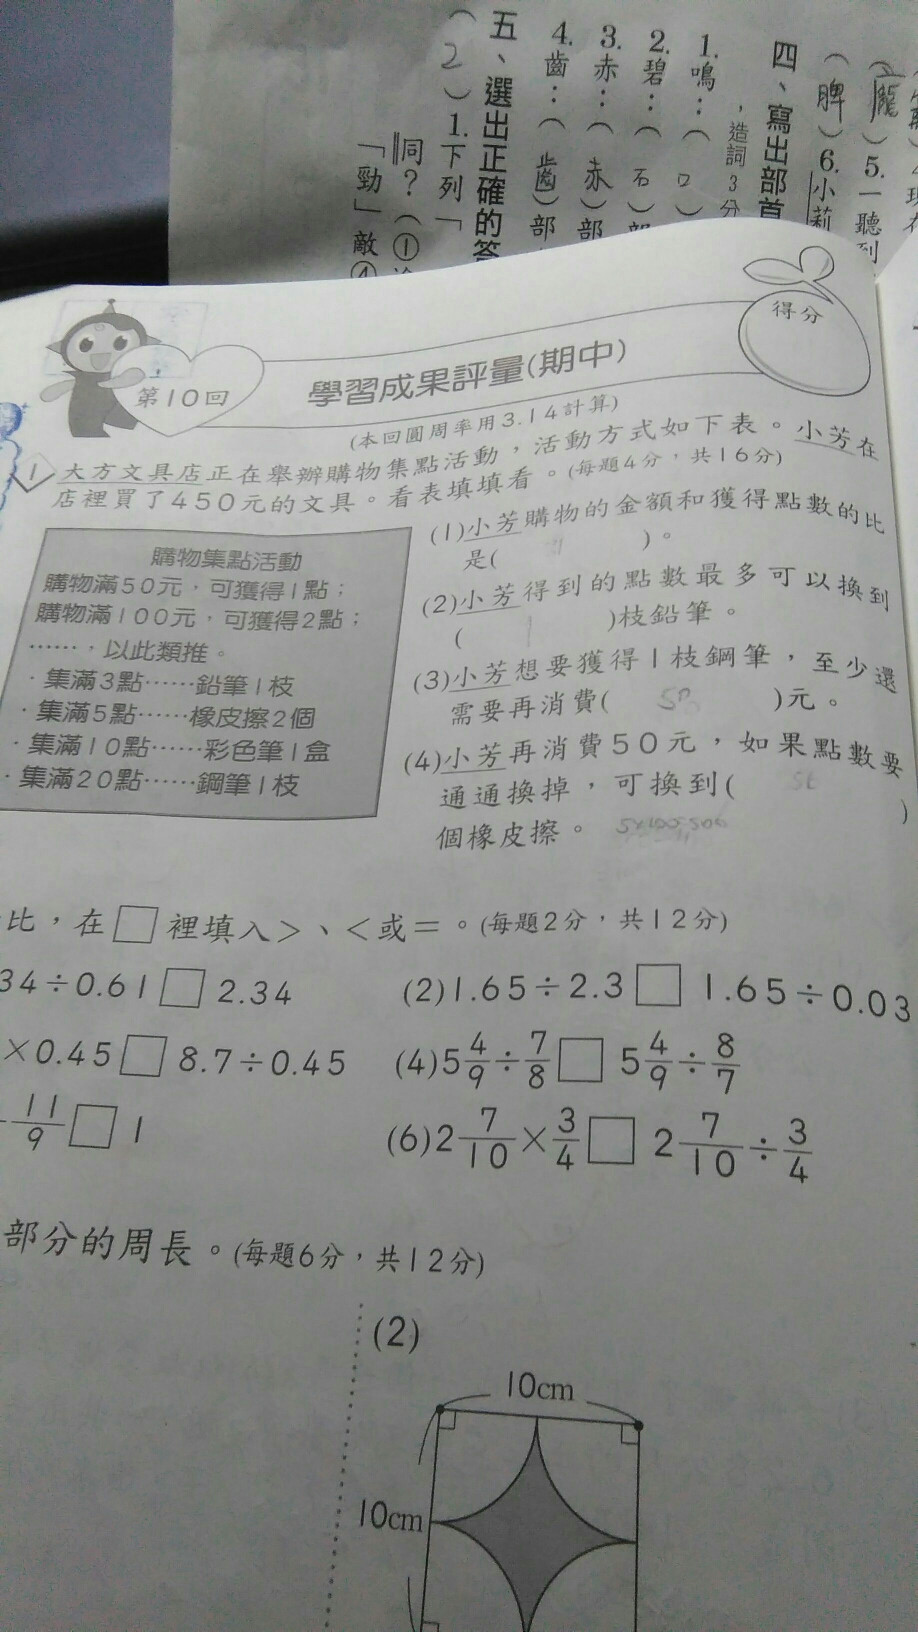 四、寫出部首
，造詞3分
1.鳴：（口）
2.碧：（石）部
3.赤：（赤）部
4.齒：（齒）部
五、選出正確的答
（2）1.下列「
同？（①
「勁」敵④
（脾）6.小莉
）5.一聽到
得分
第10回
學習成果評量(期中)
(本回圓周率用3.14計算)
1 大方文具店正在舉辦購物集點活動，活動方式如下表。小芳在
店裡買了450元的文具。看表填填看。(每題4分，共16分)
購物集點活動
購物滿50元，可獲得1點；
購物滿100元，可獲得2點；
……，以此類推。
·集滿3點……鉛筆1枝
·集滿5點……橡皮擦2個
·集滿10點……彩色筆1盒
·集滿20點……鋼筆1枝
(1)小芳購物的金額和獲得點數的比
是( )。
(2)小芳得到的點數最多可以換到
( )枝鉛筆。
(3)小芳想要獲得1枝鋼筆，至少還
需要再消費( )元。
(4)小芳再消費50元，如果點數要
通通換掉，可換到( )
個橡皮擦。
比，在□裡填入>、<或=。(每題2分，共12分)
34÷0.61□2.34
(2)1.65÷2.3□1.65÷0.03
×0.45□8.7÷0.45
(4)5 4/9÷7/8□5 4/9÷8/7
11/9□1
(6)2 7/10×3/4□2 7/10÷3/4
部分的周長。(每題6分，共12分)
(2)
10cm
10cm